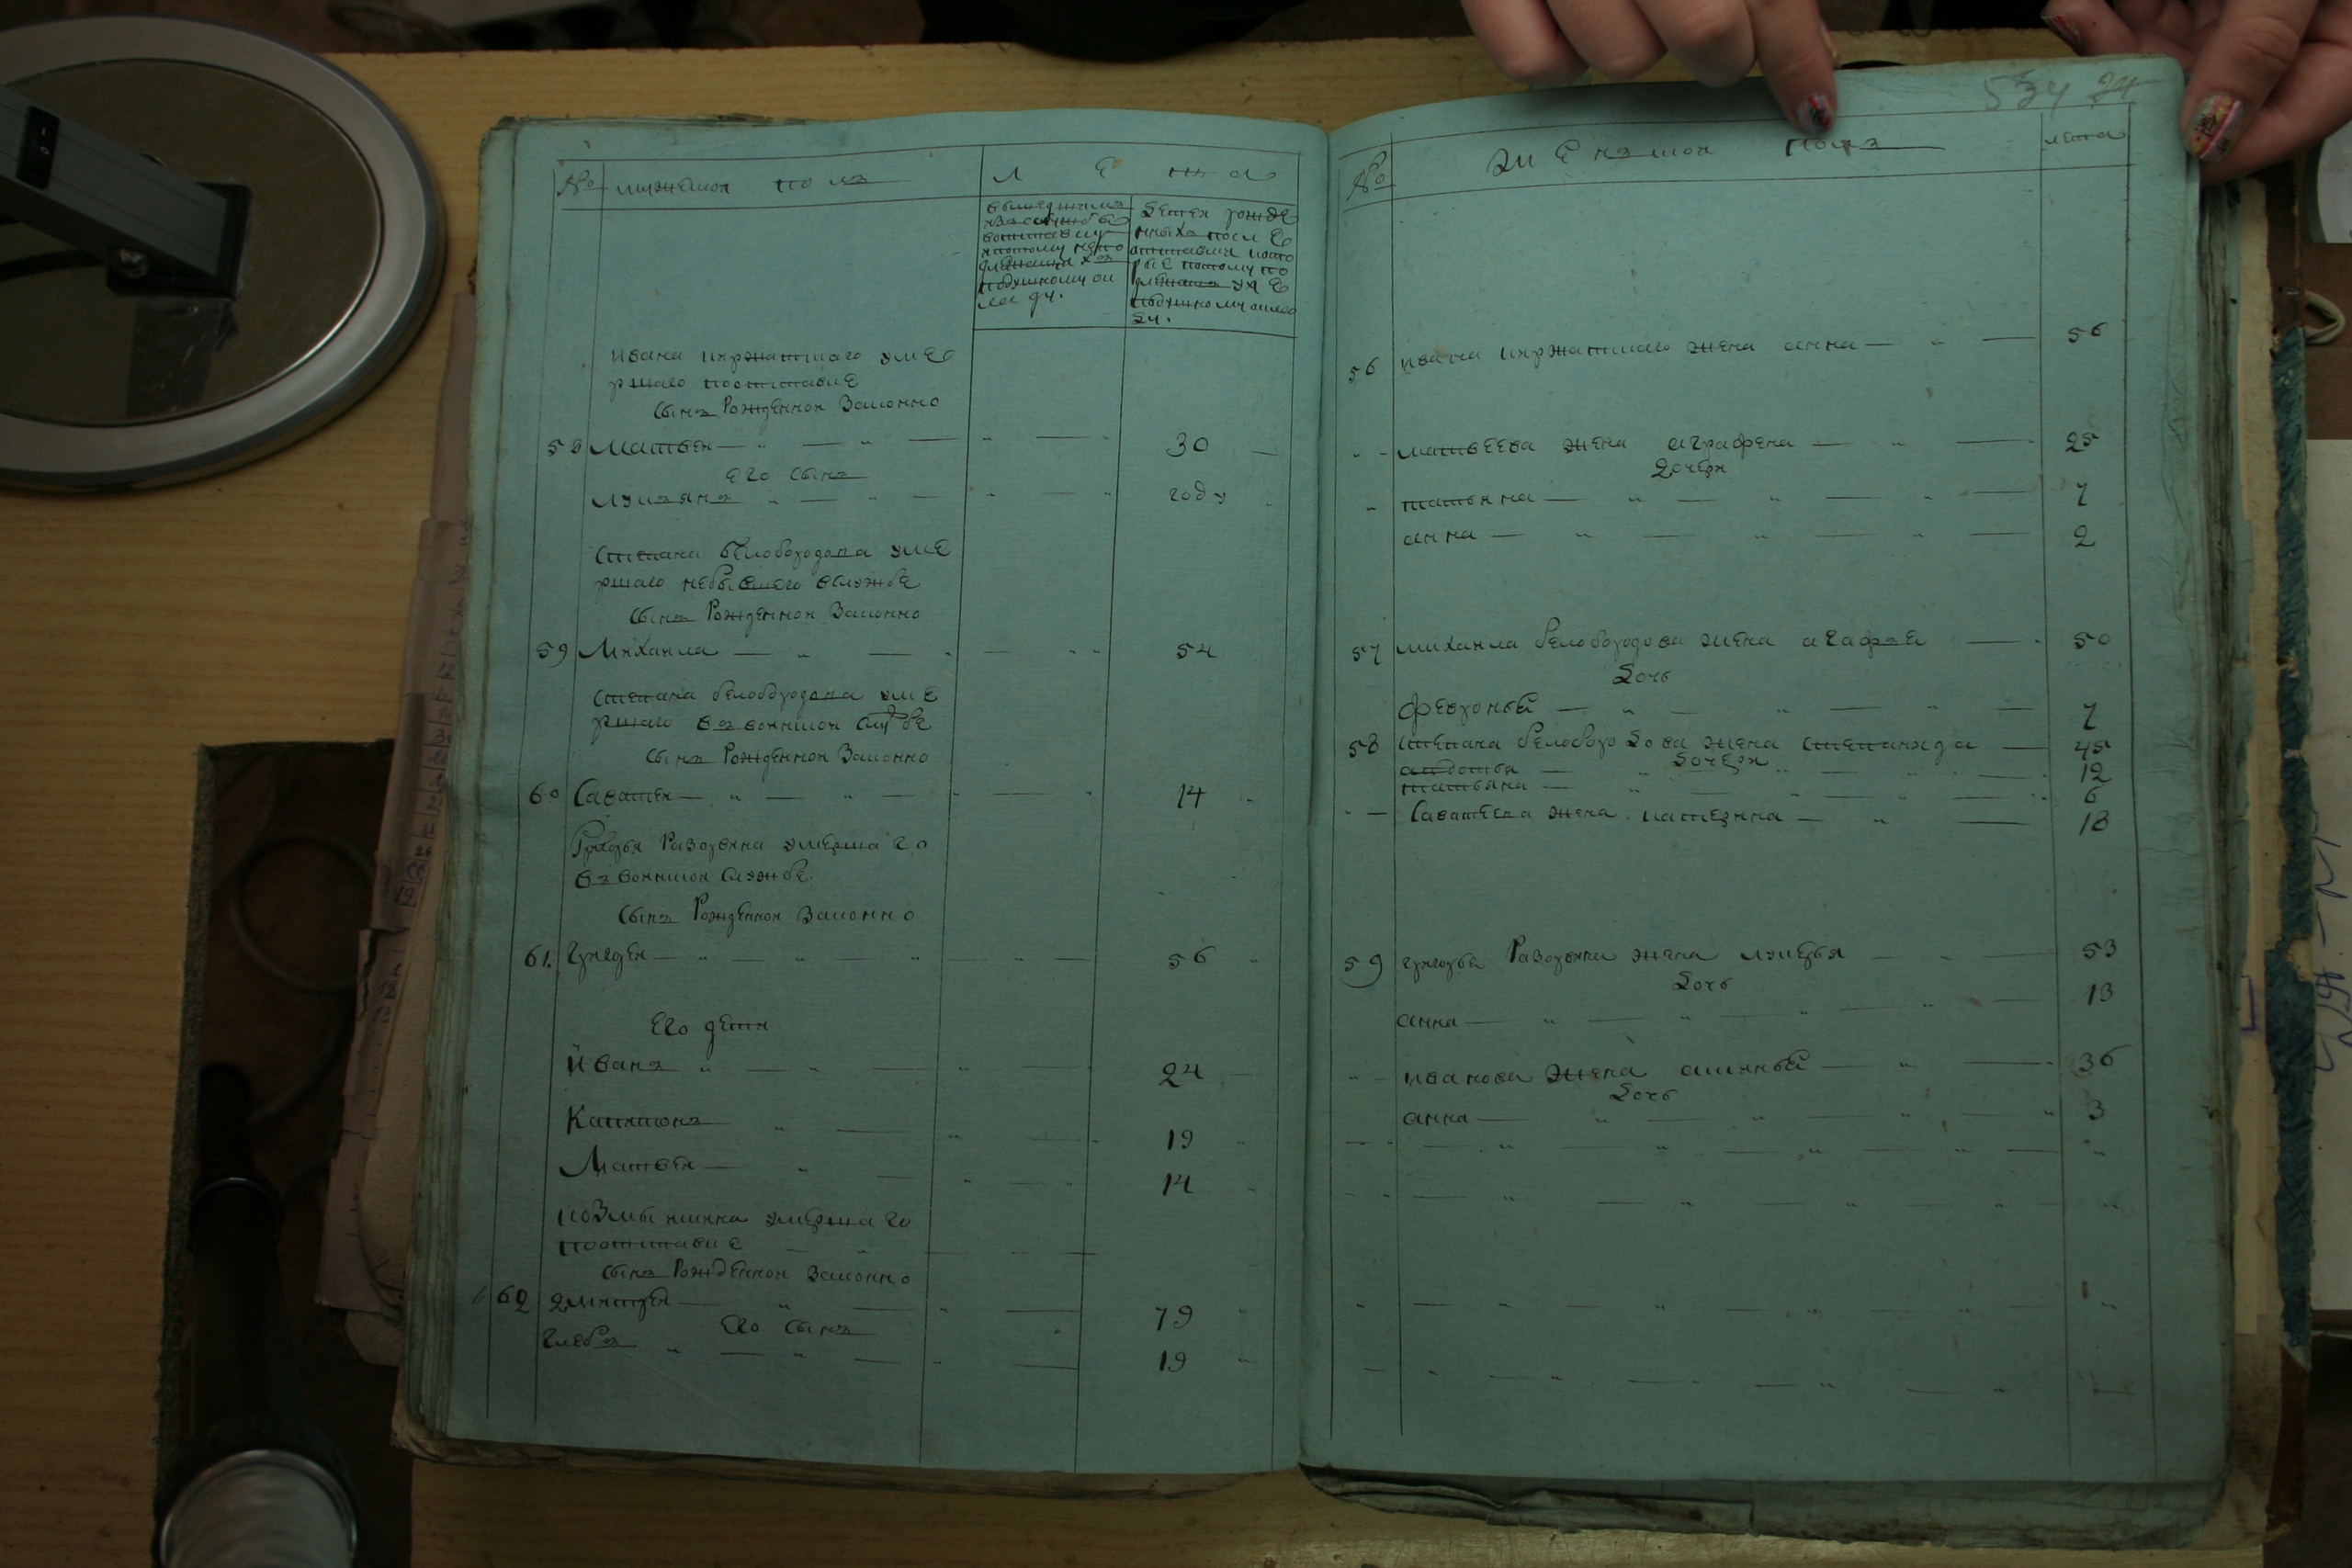 № мужеской полъ
Л е та
детей рожде
нныхъ после
подушному окла
ду.
Ивана
умершаго поотставке
сынъ Рожденной Законно
58 Матвей — " — " — " — " 30 —
Его сынъ
Лукъянъ " — " — " — " году
Степана белобородова уме
ршаго небывшего вслужбе
сынъ Рожденной Законно
59 Михаила — " — " — " " 54
Степана белобородова уме
ршаго въ воинской службе
сынъ Рожденной Законно
60 Саватей — " — " — " — " 14
Григорья Разорвина умершаго
въ воинской службе
сынъ Рожденной Законно
61. григорей — " — " — " — " — 56 "
Его дети
Иванъ " — " — " — 24 —
Капитонъ " — " — " 19 "
Матвей — " — " — " 14
умершаго
поотставке — " — — —
сынъ Рожденной Законно
62 дмитрей — " — " — 79 "
Его сынъ
глебъ " — " — " — 19 "
534 24
№ женской полъ лета
56 ивана жена анна — " — 56
" - матвеева жена аграфена — " — 25
дочери
" татьяна — " — " — " — 7
анна — " — " — " — 2
57 михаила белобородова жена агафья — " 50
дочь
февронья — " — " — " — 7
58 степана белобородова жена степанида — 45
дочери
авдотья — " — " — " — 12
татьяна — " — " — " — 6
" — Саватеева жена катерина — " — 18
59 григорья Разорвина жена лукерья — " — 53
дочь
анна — " — " — " — " — 13
" - иванова жена — " — 36
дочь
анна — " — " — " — " 3